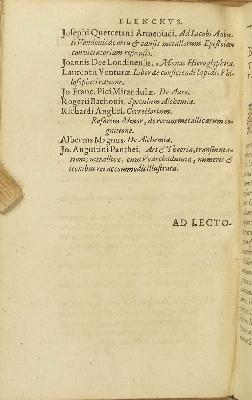 ELENCHVS.
Josephi Quercetani Armeniaci. Ad Jacobi Auber-
ti Vendonis de ortu & causis metallorum Epistolam
convitiatoriam responsio.
Joannis Dee Londinensis. Monas Hieroglyphica.
Laurentii Venturæ. Liber de conficiendi lapidis Phi-
losophici ratione.
Jo. Franc. Pici Mirandulæ. De Auro.
Rogerii Bachonis. Speculum Alchemiæ.
Richardi Anglici. Correctorium.
Rosarius Minor, de rerum metallicarum co-
gnitione.
Albertus Magnus. De Alchemia.
Jo. Augustini Panthei. Ars & Theoria, transmutati-
onis metallicæ, cum Voarchadumia, numeris &
iconibus rei accommodis illustrata.
AD LECTO-